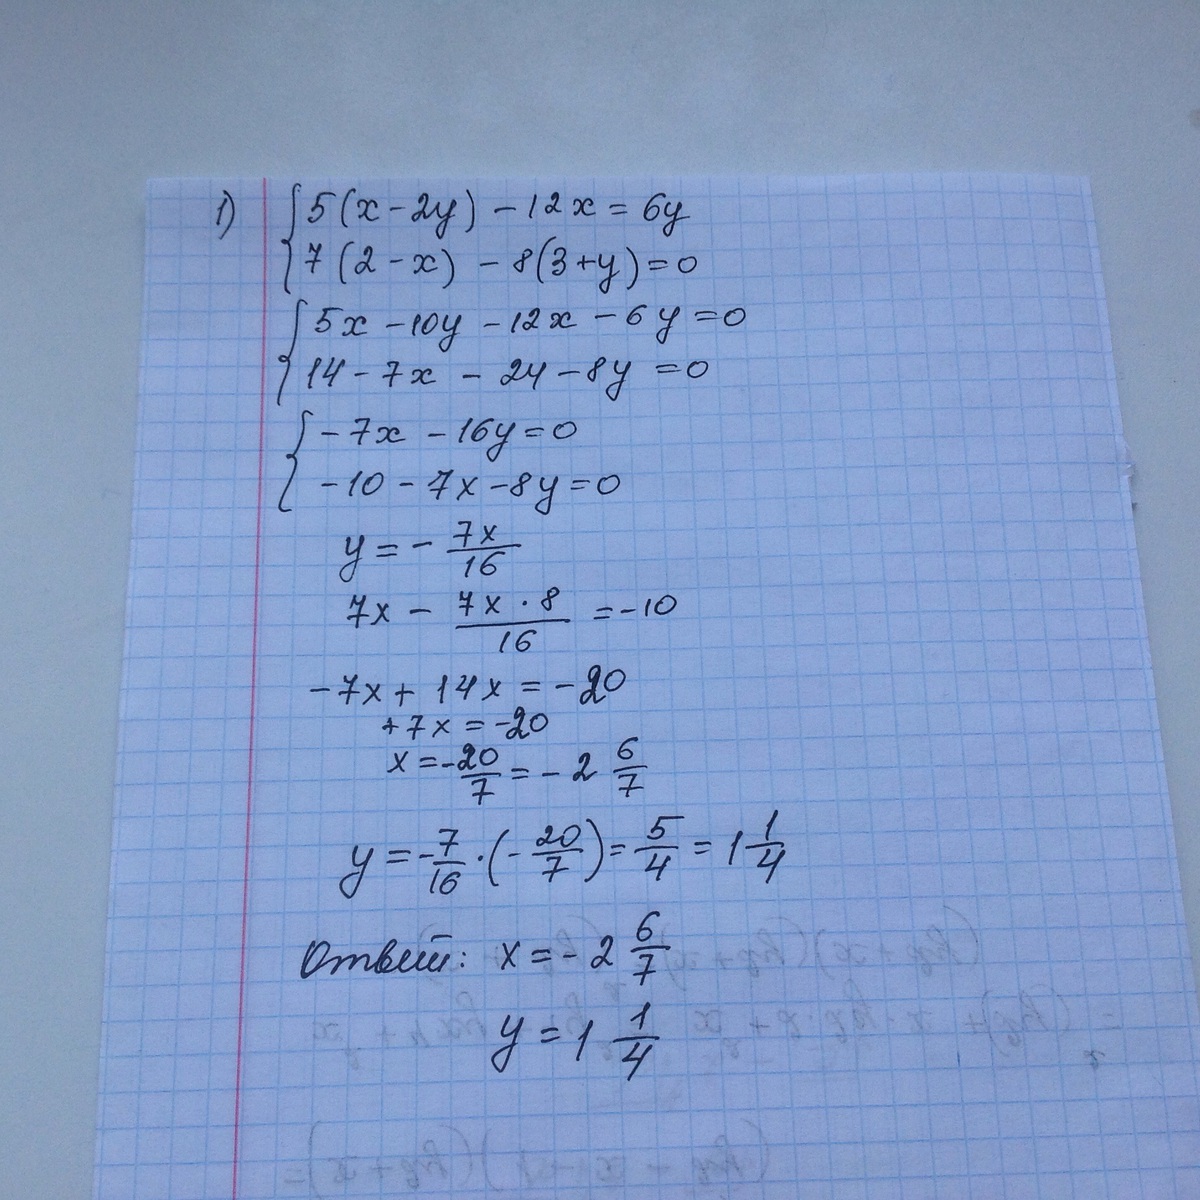 1) { 5(x-2y) - 12x = 6y
7(2-x) - 8(3+y) = 0
{ 5x - 10y - 12x - 6y = 0
14 - 7x - 24 - 8y = 0
{ -7x - 16y = 0
-10 - 7x - 8y = 0
y = - 7x/16
7x - 7x·8/16 = -10
-7x + 14x = -20
+7x = -20
x = -20/7 = -2 6/7
y = -7/16 · (-20/7) = 5/4 = 1 1/4
Ответ: x = -2 6/7
y = 1 1/4